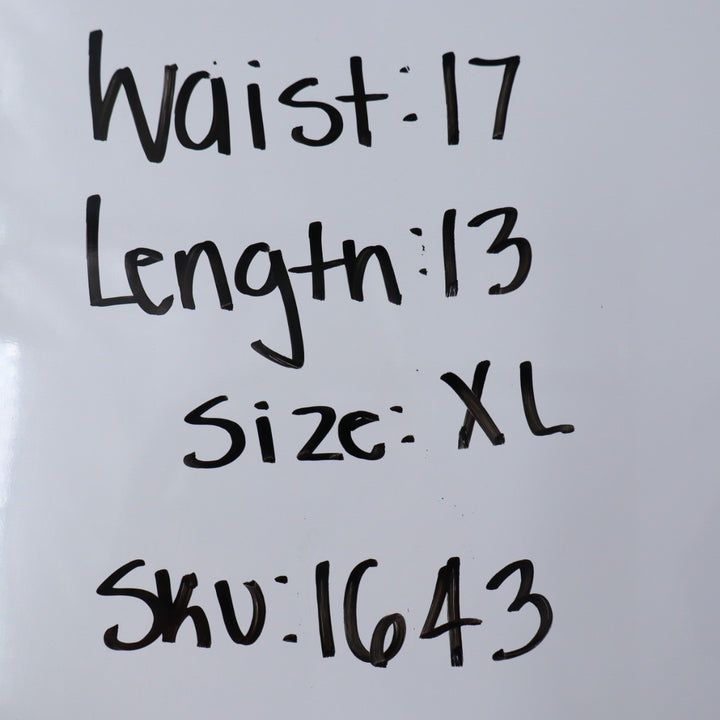 Waist: 17
Length: 13
Size: XL
Sku: 1643